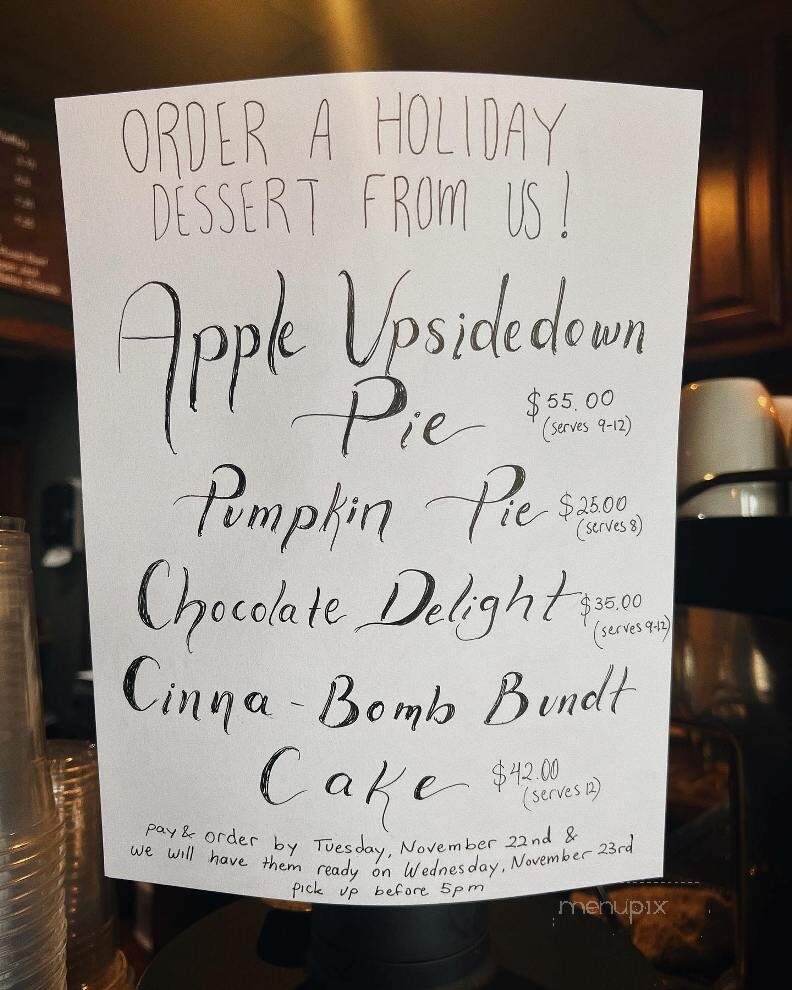 ORDER A HOLIDAY
DESSERT FROM US!
Apple Upsidedown
Pie $55.00
(serves 9-12)
Pumpkin Pie $25.00
(serves 8)
Chocolate Delight $35.00
(serves 9-12)
Cinna-Bomb Bundt
Cake $42.00
(serves 12)
pay & order by Tuesday, November 22nd &
we will have them ready on Wednesday, November 23rd
pick up before 5pm
menupix